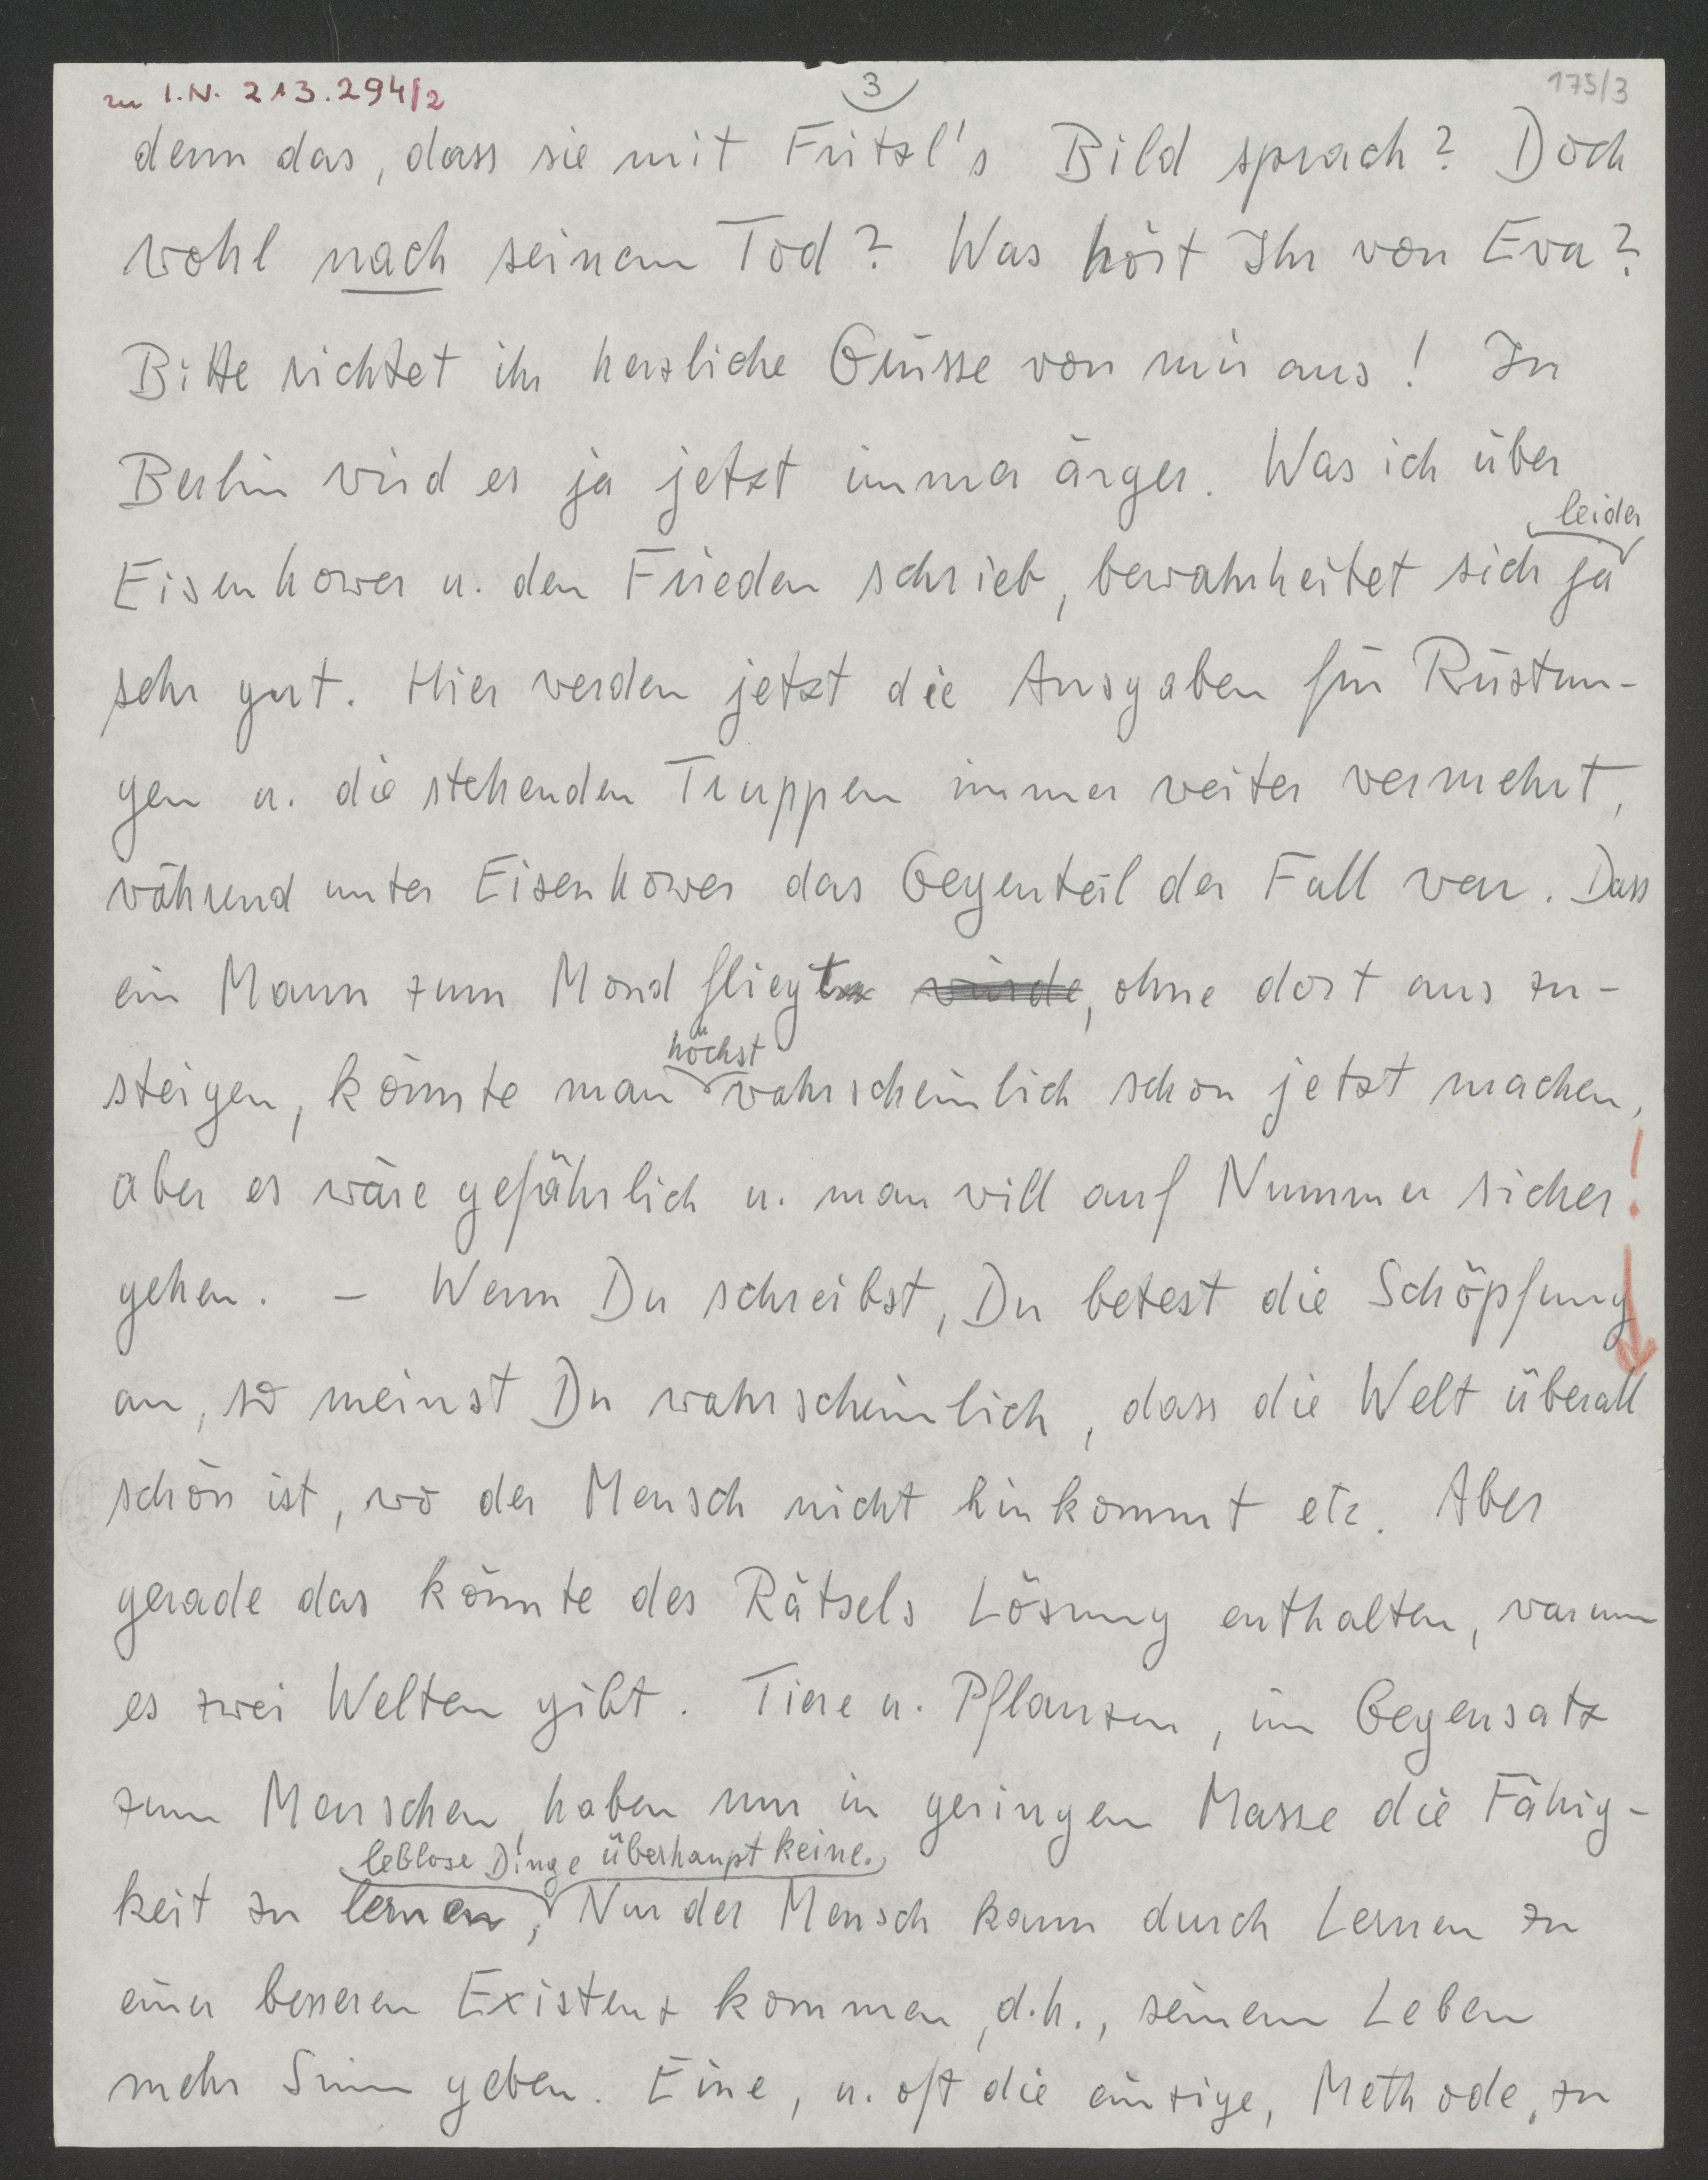 zu I.N. 213.294/2
3
175/3
denn das, dass sie mit Fritzl's Bild sprach? Doch
wohl nach seinem Tod? Was hört Ihr von Eva?
Bitte richtet ihr herzliche Grüsse von mir aus! In
Berlin wird es ja jetzt immer ärger. Was ich über
leider
Eisenhower u. den Frieden schrieb, bewahrheitet sich ja
sehr gut. Hier werden jetzt die Ausgaben für Rüstun-
gen u. die stehenden Truppen immer weiter vermehrt,
während unter Eisenhower das Gegenteil der Fall war. Dass
ein Mann zum Mond fliegt würde, ohne dort aus zu-
höchst
steigen, könnte man wahrscheinlich schon jetzt machen,
aber es wäre gefährlich u. man will auf Nummer sicher !
gehen. – Wenn Du schreibst, Du betest die Schöpfung
an, so meinst Du wahrscheinlich, dass die Welt überall
schön ist, wo der Mensch nicht hinkommt etc. Aber
gerade das könnte des Rätsels Lösung enthalten, warum
es zwei Welten gibt. Tiere u. Pflanzen, im Gegensatz
zum Menschen, haben nur in geringen Masse die Fähig-
leblose Dinge überhaupt keine.
keit zu lernen, Nur der Mensch kann durch Lernen zu
einer besseren Existenz kommen, d.h., seinem Leben
mehr Sinn geben. Eine, u. oft die einzige, Methode, zu